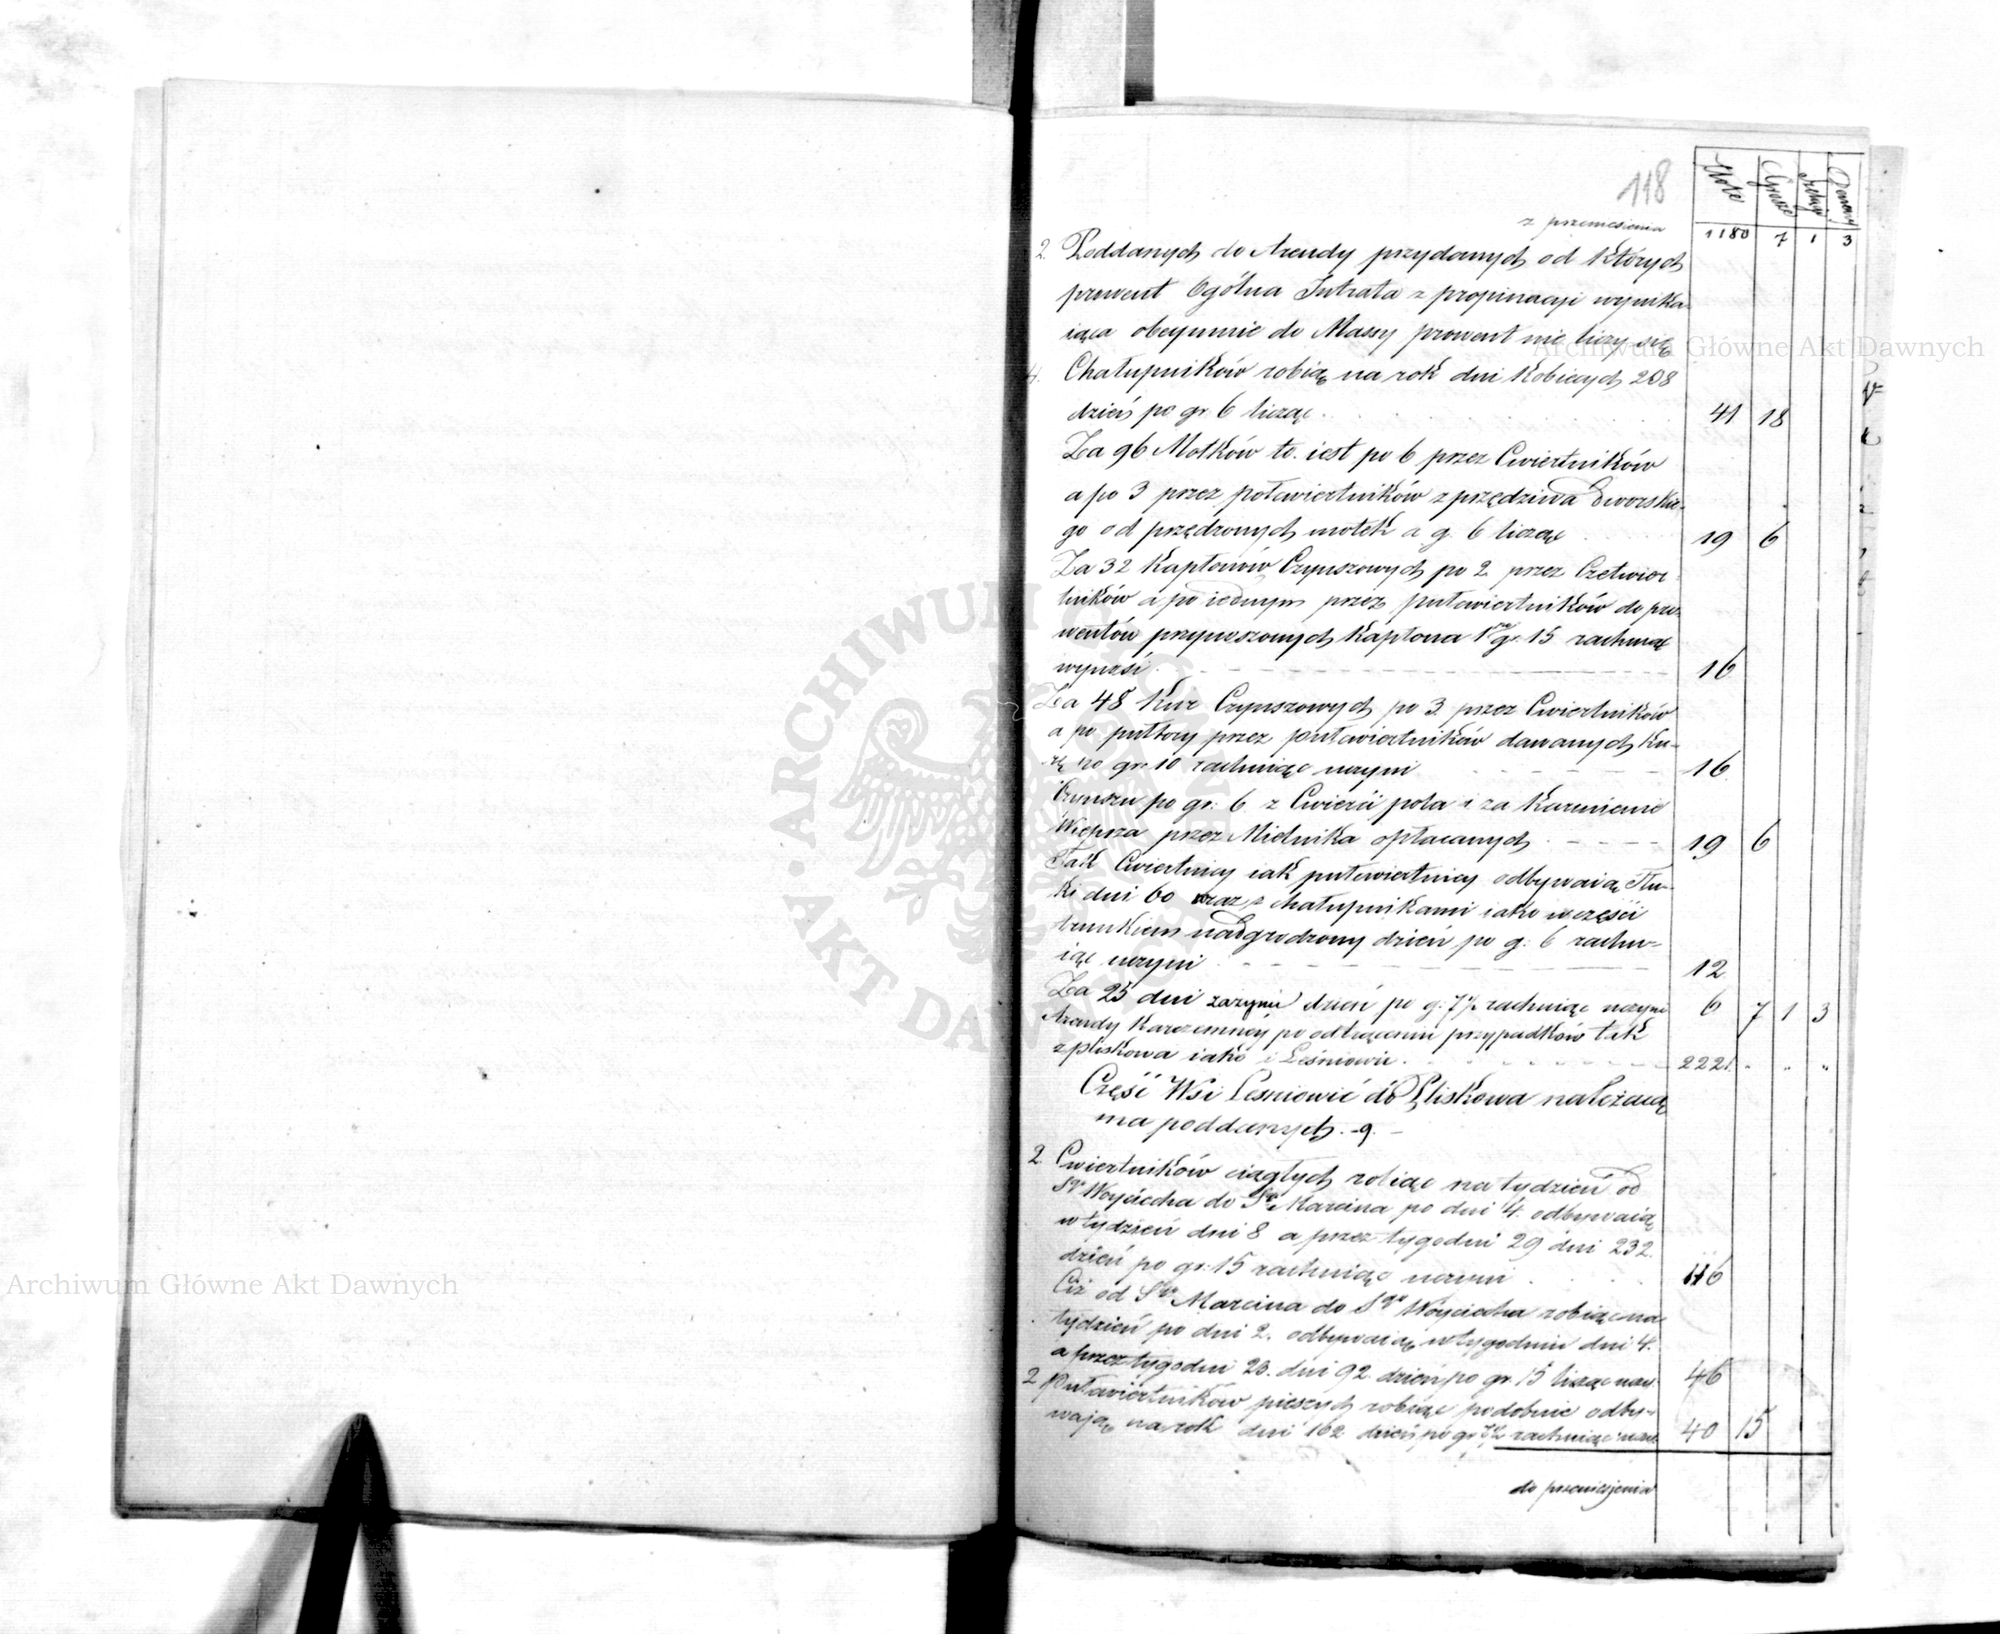 118
Złote Grosze Szelągi Denary
z przeniesienia 1180 7 1 3
2. Poddanych do Arendy przydanych od których
prowent Ogólna Intrata z propinacyi wynika-
iąca obeymuie do Massy prowent nie liczy się
4. Chałupników robiąc na rok dni kobiecych 208
dzień po gr. 6 licząc 41 18
Za 96 Motków to iest po 6 przez Cwiertników
a po 3 przez pułcwiertników z przędziwa Dworskie-
go od przędzonych motek a g. 6 licząc 19 6
Za 32 Kapłonów Czynszowych po 2 przez Czetwier-
tników a po iednym przez pułcwiertników do pro-
wentów przynoszonych Kapłona 1go gr. 15 rachuiąc
wynosi 16
Za 48 Kur Czynszowych po 3 przez Cwiertników
a po pułtory przez pułcwiertników dawanych ku-
rę po gr. 10 rachuiąc uczyni 16
Czynszu po gr. 6 z Cwierci pola i za Karmienie
Wieprza przez Mielnika opłacanych 19 6
Tak Cwiertnicy iak pułcwiertnicy odbywaią Tłu-
ki dni 60 wraz z chałupnikami iako w części
trunkiem nadgrodzony dzień po g. 6 rachu-
iąc uczyni 12
Za 25 dni zażynu dzień po g. 7½ rachuiąc uczyni 6 7 1 3
Arendy Karczemney po odtrąceniu przypadków tak
z Pliskowa iako i Leśniowic 2221 " " "
Część Wsi Lesniowic do Pliskowa należąca
ma poddanych -9.-
2. Cwiertników ciągłych robiąc na tydzień od
Sgo Woyciecha do Sgo Marcina po dni 4. odbywaią
w tydzień dni 8 a przez tygodni 29 dni 232
dzień po gr. 15 rachuiąc uczyni 116
Ciż od Sgo Marcina do Sgo Woyciecha robiąc na
tydzień po dni 2. odbywaią w tygodniu dni 4.
a przez tygodni 23. dni 92 dzień po gr. 15 licząc uczy. 46
2 Pułcwiertników pieszych robiąc podobnie odby-
waią na rok dni 162 dzień po gr 7½ rachuiąc 40 15
do przeniesienia
Archiwum Główne Akt Dawnych
Archiwum Główne Akt Dawnych
ARCHIWUM GŁÓWNE AKT DAWNYCH